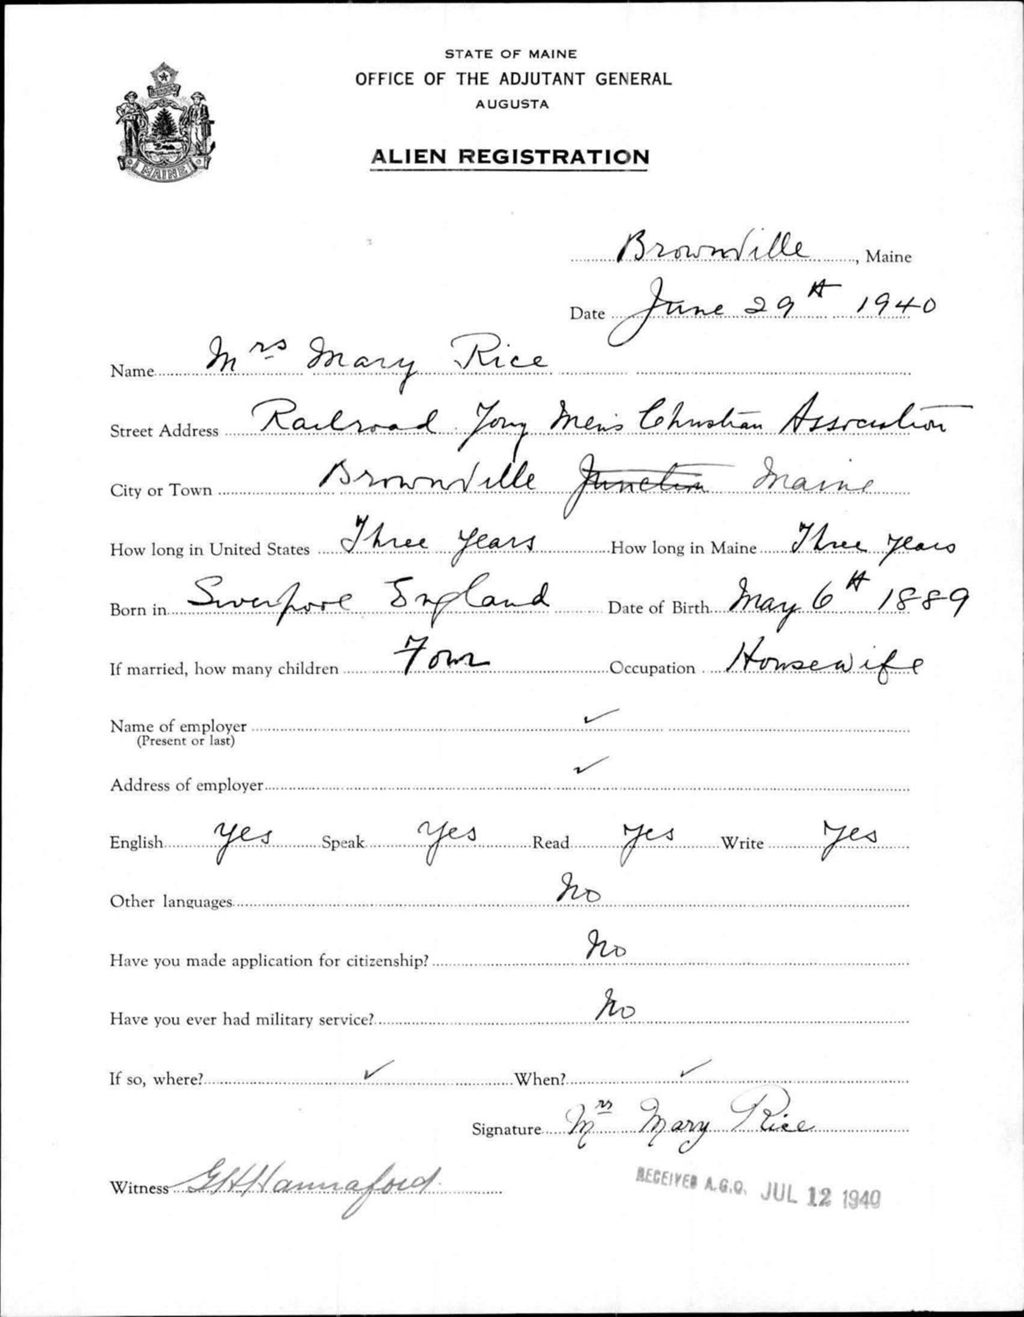 STATE OF MAINE
OFFICE OF THE ADJUTANT GENERAL
AUGUSTA
ALIEN REGISTRATION
MAINE
Brownville, Maine
Date June 29th 1940
Name Mrs Mary Rice
Street Address Railroad Yong Men's Christian Association
City or Town Brownville Junction Maine
How long in United States Three years How long in Maine Three years
Born in Liverpool England Date of Birth May 6th 1889
If married, how many children Four Occupation Housewife
Name of employer ✓
(Present or last)
Address of employer ✓
English yes Speak Yes Read yes Write Yes
Other languages No
Have you made application for citizenship? No
Have you ever had military service? No
If so, where? ✓ When? ✓
Signature Mrs Mary Rice
Witness G H Hannaford
RECEIVED A.G.O. JUL 12 1940